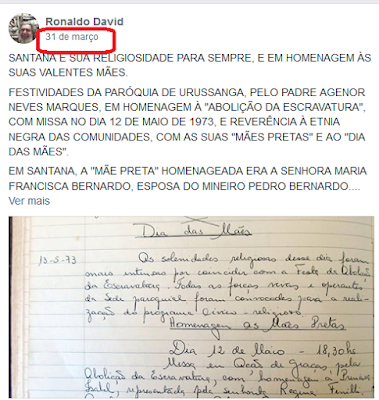 Ronaldo David
31 de março
SANTANA E SUA RELIGIOSIDADE PARA SEMPRE, E EM HOMENAGEM ÀS
SUAS VALENTES MÃES.
FESTIVIDADES DA PARÓQUIA DE URUSSANGA, PELO PADRE AGENOR
NEVES MARQUES, EM HOMENAGEM À "ABOLIÇÃO DA ESCRAVATURA",
COM MISSA NO DIA 12 DE MAIO DE 1973, E REVERÊNCIA À ETNIA
NEGRA DAS COMUNIDADES, COM AS SUAS "MÃES PRETAS" E AO "DIA
DAS MÃES".
EM SANTANA, A "MÃE PRETA" HOMENAGEADA ERA A SENHORA MARIA
FRANCISCA BERNARDO, ESPOSA DO MINEIRO PEDRO BERNARDO....
Ver mais
Dia das Mães
13-5-73 As solenidades religiosas desse dia foram
mais intensas por coincidir com a Festa da Abolição
da Escravatura. Todas as forças vivas e operantes
da Sede paroquial foram convocadas para a reali-
zação do programa cívico-religioso.
Homenagem às Mães Pretas
Dia 12 de Maio - 18,30hs
Missa em Ação de Graças, pela
Abolição da Escravatura, com homenagem a Princesa
Isabel, representada pela senhorita Regina